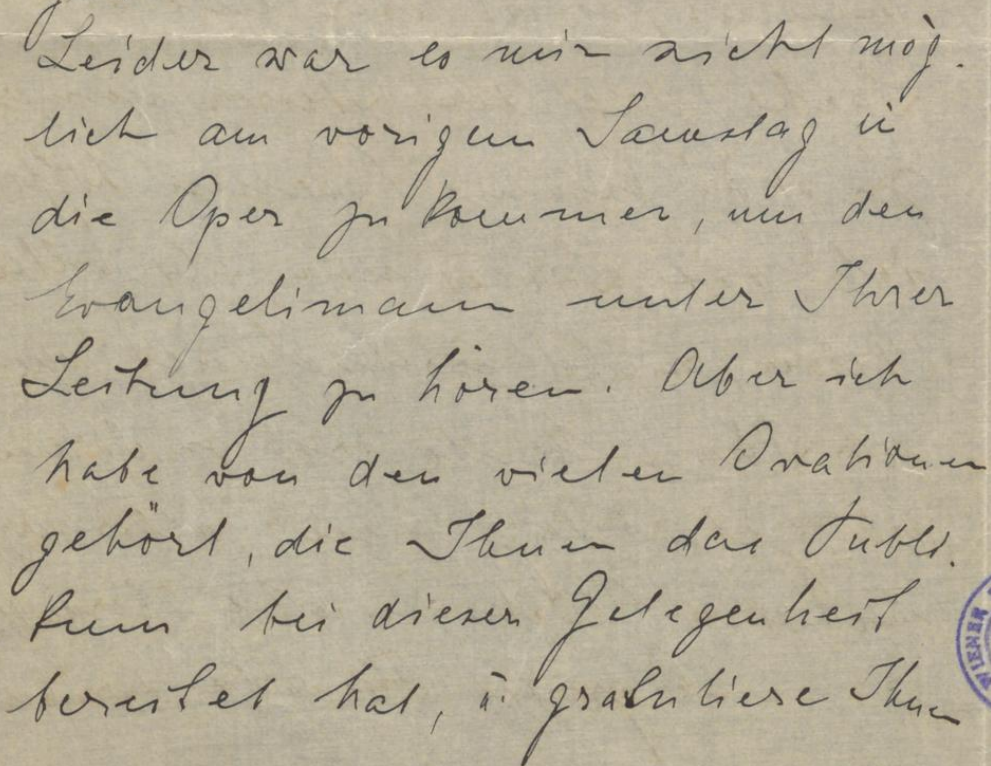 Leider war es mir nicht mög-
lich am vorigen Samstag in
die Oper zu kommen, um den
Evangelimann unter Ihrer
Leitung zu hören. Aber ich
habe von den vielen Ovationen
gehört, die Ihnen das Publi-
kum bei dieser Gelegenheit
bereitet hat, u. gratuliere Ihnen
WIENER